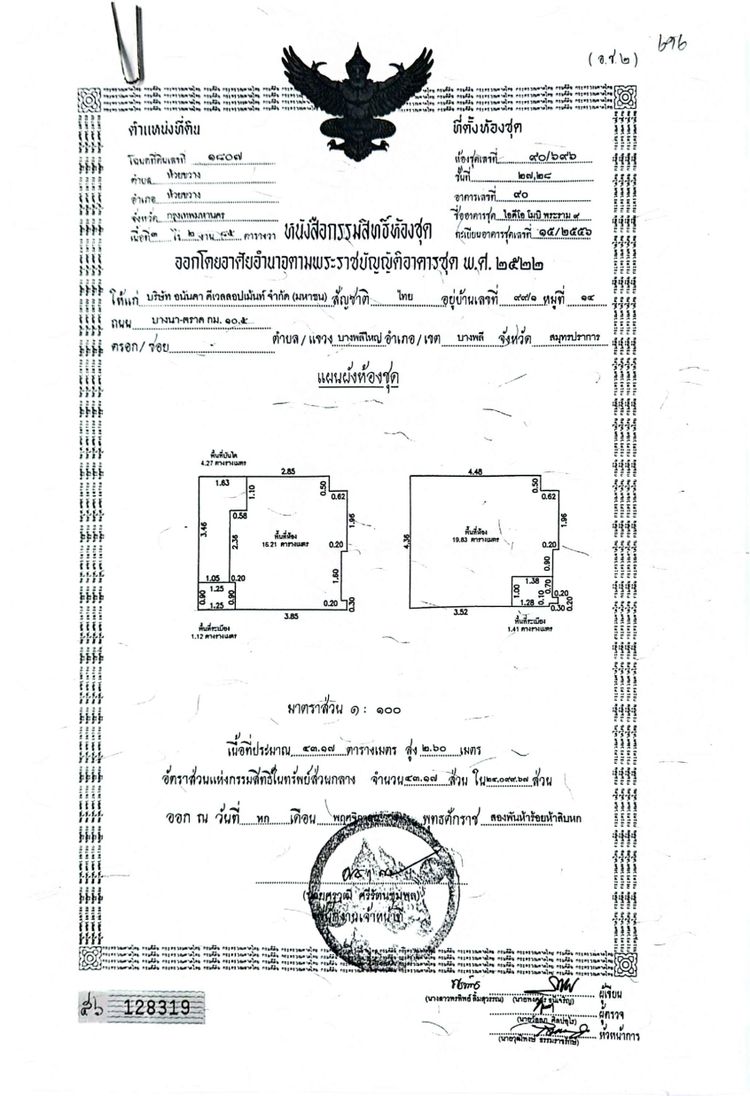 ๖๙๖
(อ.ช.๒)
ตำแหน่งที่ดิน
โฉนดที่ดินเลขที่ ๑๘๐๗
ตำบล ห้วยขวาง
อำเภอ ห้วยขวาง
จังหวัด กรุงเทพมหานคร
เนื้อที่ ๓ ไร่ ๒ งาน ๘๕ ตารางวา
ที่ตั้งห้องชุด
ห้องชุดเลขที่ ๙๐/๖๙๖
ชั้นที่ ๒๗,๒๘
อาคารเลขที่ ๙๐
ชื่ออาคารชุด ไอดีโอ โมบิ พระราม ๙
ทะเบียนอาคารชุดเลขที่ ๑๕/๒๕๕๖
หนังสือกรรมสิทธิ์ห้องชุด
ออกโดยอาศัยอำนาจตามพระราชบัญญัติอาคารชุด พ.ศ. ๒๕๒๒
ให้แก่ บริษัท อนันดา ดีเวลลอปเม้นท์ จำกัด (มหาชน) สัญชาติ ไทย อยู่บ้านเลขที่ ๙๙/๑ หมู่ที่ ๑๔
ถนน บางนา-ตราด กม. ๑๐.๕
ตรอก/ซอย ตำบล/แขวง บางพลีใหญ่ อำเภอ/เขต บางพลี จังหวัด สมุทรปราการ
แผนผังห้องชุด
พื้นที่บันได
4.27 ตารางเมตร
1.63
2.85
1.10
0.50
0.62
0.58
3.46
2.36
พื้นที่ห้อง
16.21 ตารางเมตร
1.96
0.20
1.05
0.20
1.25
0.90
0.90
1.25
1.60
0.20
0.30
3.85
พื้นที่ระเบียง
1.12 ตารางเมตร
4.48
0.50
0.62
4.36
พื้นที่ห้อง
19.83 ตารางเมตร
1.96
0.20
0.90
1.38
0.70
1.00
0.10
0.20
0.20
1.28
0.30
3.52
พื้นที่ระเบียง
1.41 ตารางเมตร
มาตราส่วน ๑ : ๑๐๐
เนื้อที่ประมาณ ๔๓.๑๗ ตารางเมตร สูง ๒.๖๐ เมตร
อัตราส่วนแห่งกรรมสิทธิ์ในทรัพย์ส่วนกลาง จำนวน ๔๓.๑๗ ส่วน ใน ๒๔,๐๙๙.๖๗ ส่วน
ออก ณ วันที่ หก เดือน พุทธศักราช สองพันห้าร้อยห้าสิบหก
พนักงานเจ้าหน้าที่
128319
ผู้เขียน
ผู้ตรวจ
หัวหน้าการ